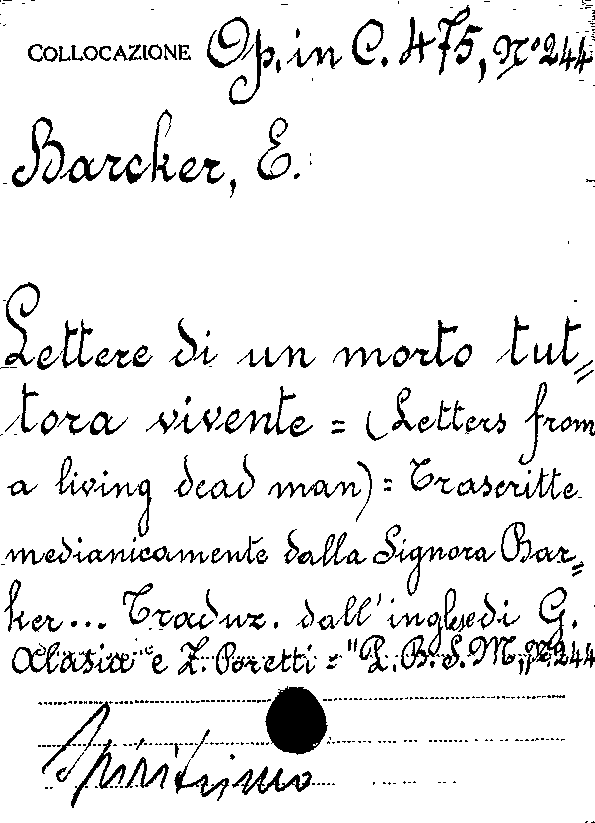 COLLOCAZIONE Op. in C. 475, N° 244
Barcker, E.
Lettere di un morto tut=
tora vivente = (Letters from
a living dead man) = Trascritte
medianicamente dalla Signora Bar=
ker... Traduz. dall'inglese di G.
Alasia e Z. Poretti = "P. B. S. M., N° 244
Spiritismo